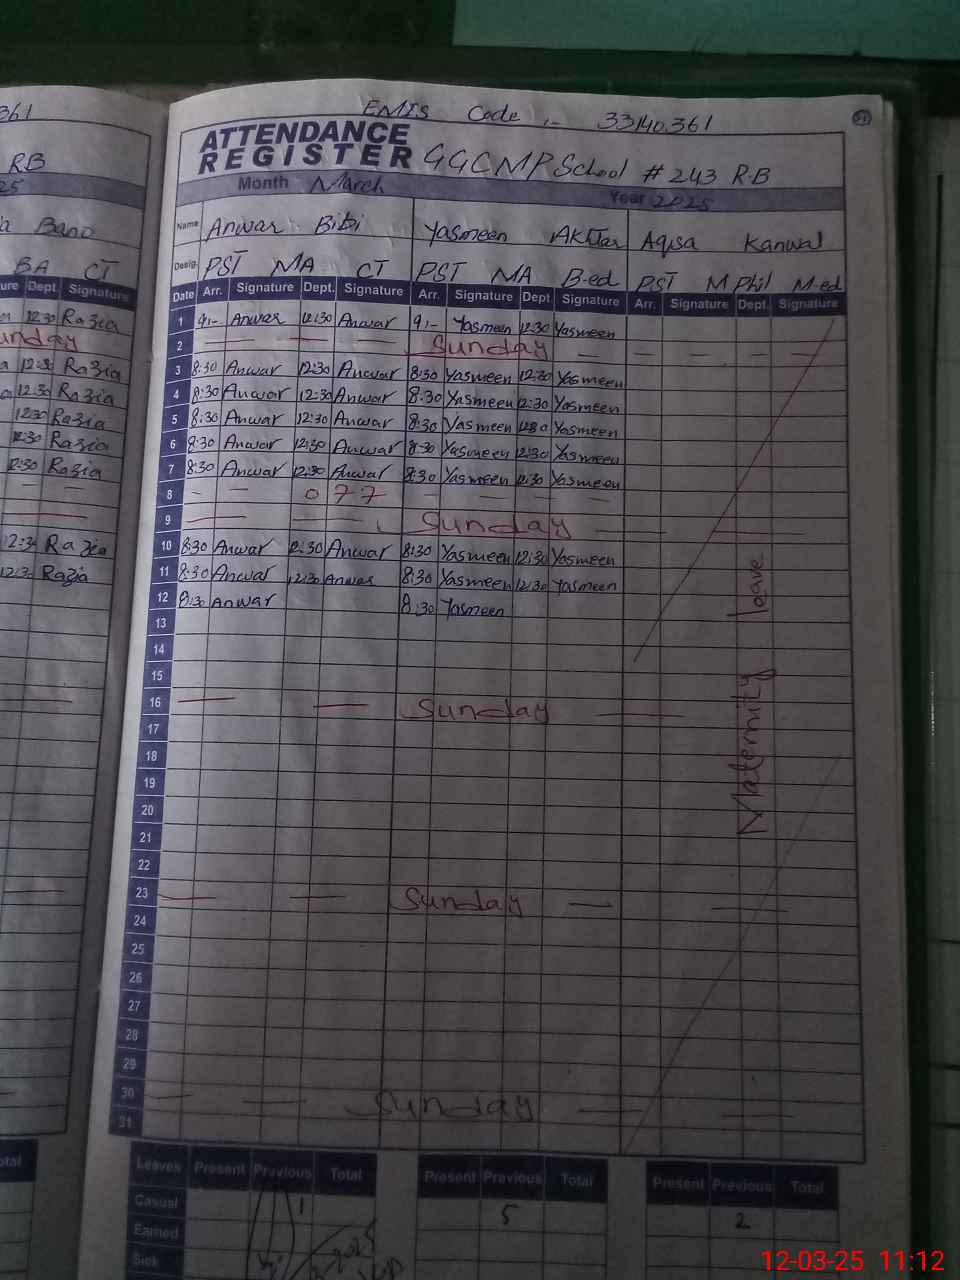 361
RB
25
Bano
BA CT
ure Dept. Signature
12:30 Razia
unday
12:30 Razia
12:30 Razia
12:30 Razia
12:30 Razia
12:30 Razia
12:30 Razia
12:30 Razia
otal
EMIS Code :- 33140361
51
ATTENDANCE
REGISTER GGCMP School # 243 R-B
Month March Year 2025
Name Anwar Bibi Yasmeen Akhtar Aqisa Kanwal
Desig. PST MA CT PST MA B-ed PST M Phil M-ed
Date Arr. Signature Dept. Signature Arr. Signature Dept. Signature Arr. Signature Dept. Signature
1 9:- Anwar 12:30 Anwar 9:- Yasmeen 12:30 Yasmeen
2 Sunday
3 8:30 Anwar 12:30 Anwar 8:30 Yasmeen 12:30 Yasmeen
4 8:30 Anwar 12:30 Anwar 8:30 Yasmeen 12:30 Yasmeen
5 8:30 Anwar 12:30 Anwar 8:30 Yasmeen 12:30 Yasmeen
6 8:30 Anwar 12:30 Anwar 8:30 Yasmeen 12:30 Yasmeen
7 8:30 Anwar 12:30 Anwar 8:30 Yasmeen 12:30 Yasmeen
8 - - 0 7 7 - - - -
9 Sunday
10 8:30 Anwar 12:30 Anwar 8:30 Yasmeen 12:30 Yasmeen
11 8:30 Anwar 12:30 Anwar 8:30 Yasmeen 12:30 Yasmeen
12 8:30 Anwar 8:30 Yasmeen
13
14
15
16 Sunday
17
18
19
20
21
22
23 Sunday
24
25
26
27
28
29
30 Sunday
31
Maternity leave
Leaves Present Previous Total Present Previous Total Present Previous Total
Casual 1 5 2
Earned
Sick
2025
12-03-25 11:12